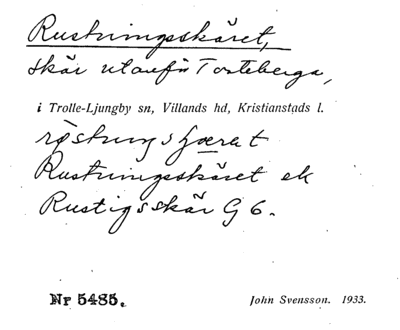 Rustningsskäret,
skär utanför Tosteberga,
i Trolle-Ljungby sn, Villands hd, Kristianstads l.
Rustningsskäret ek
Rustigsskär G 6.
Nr 5485.
John Svensson. 1933.